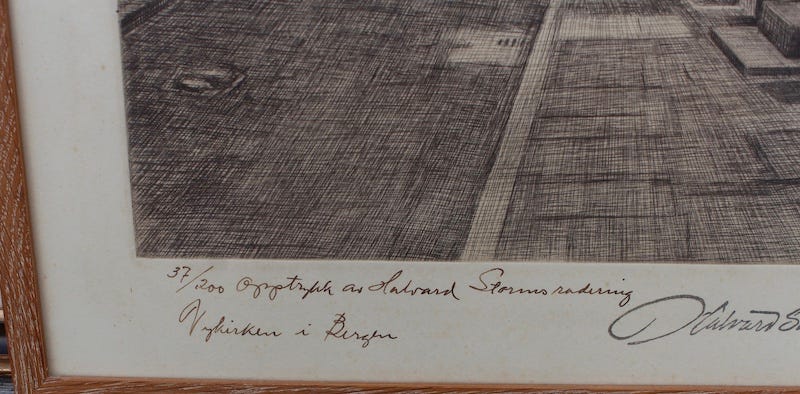 37/200 Opptrykk av Halvard Storms radering
Nykirken i Bergen
Halvard